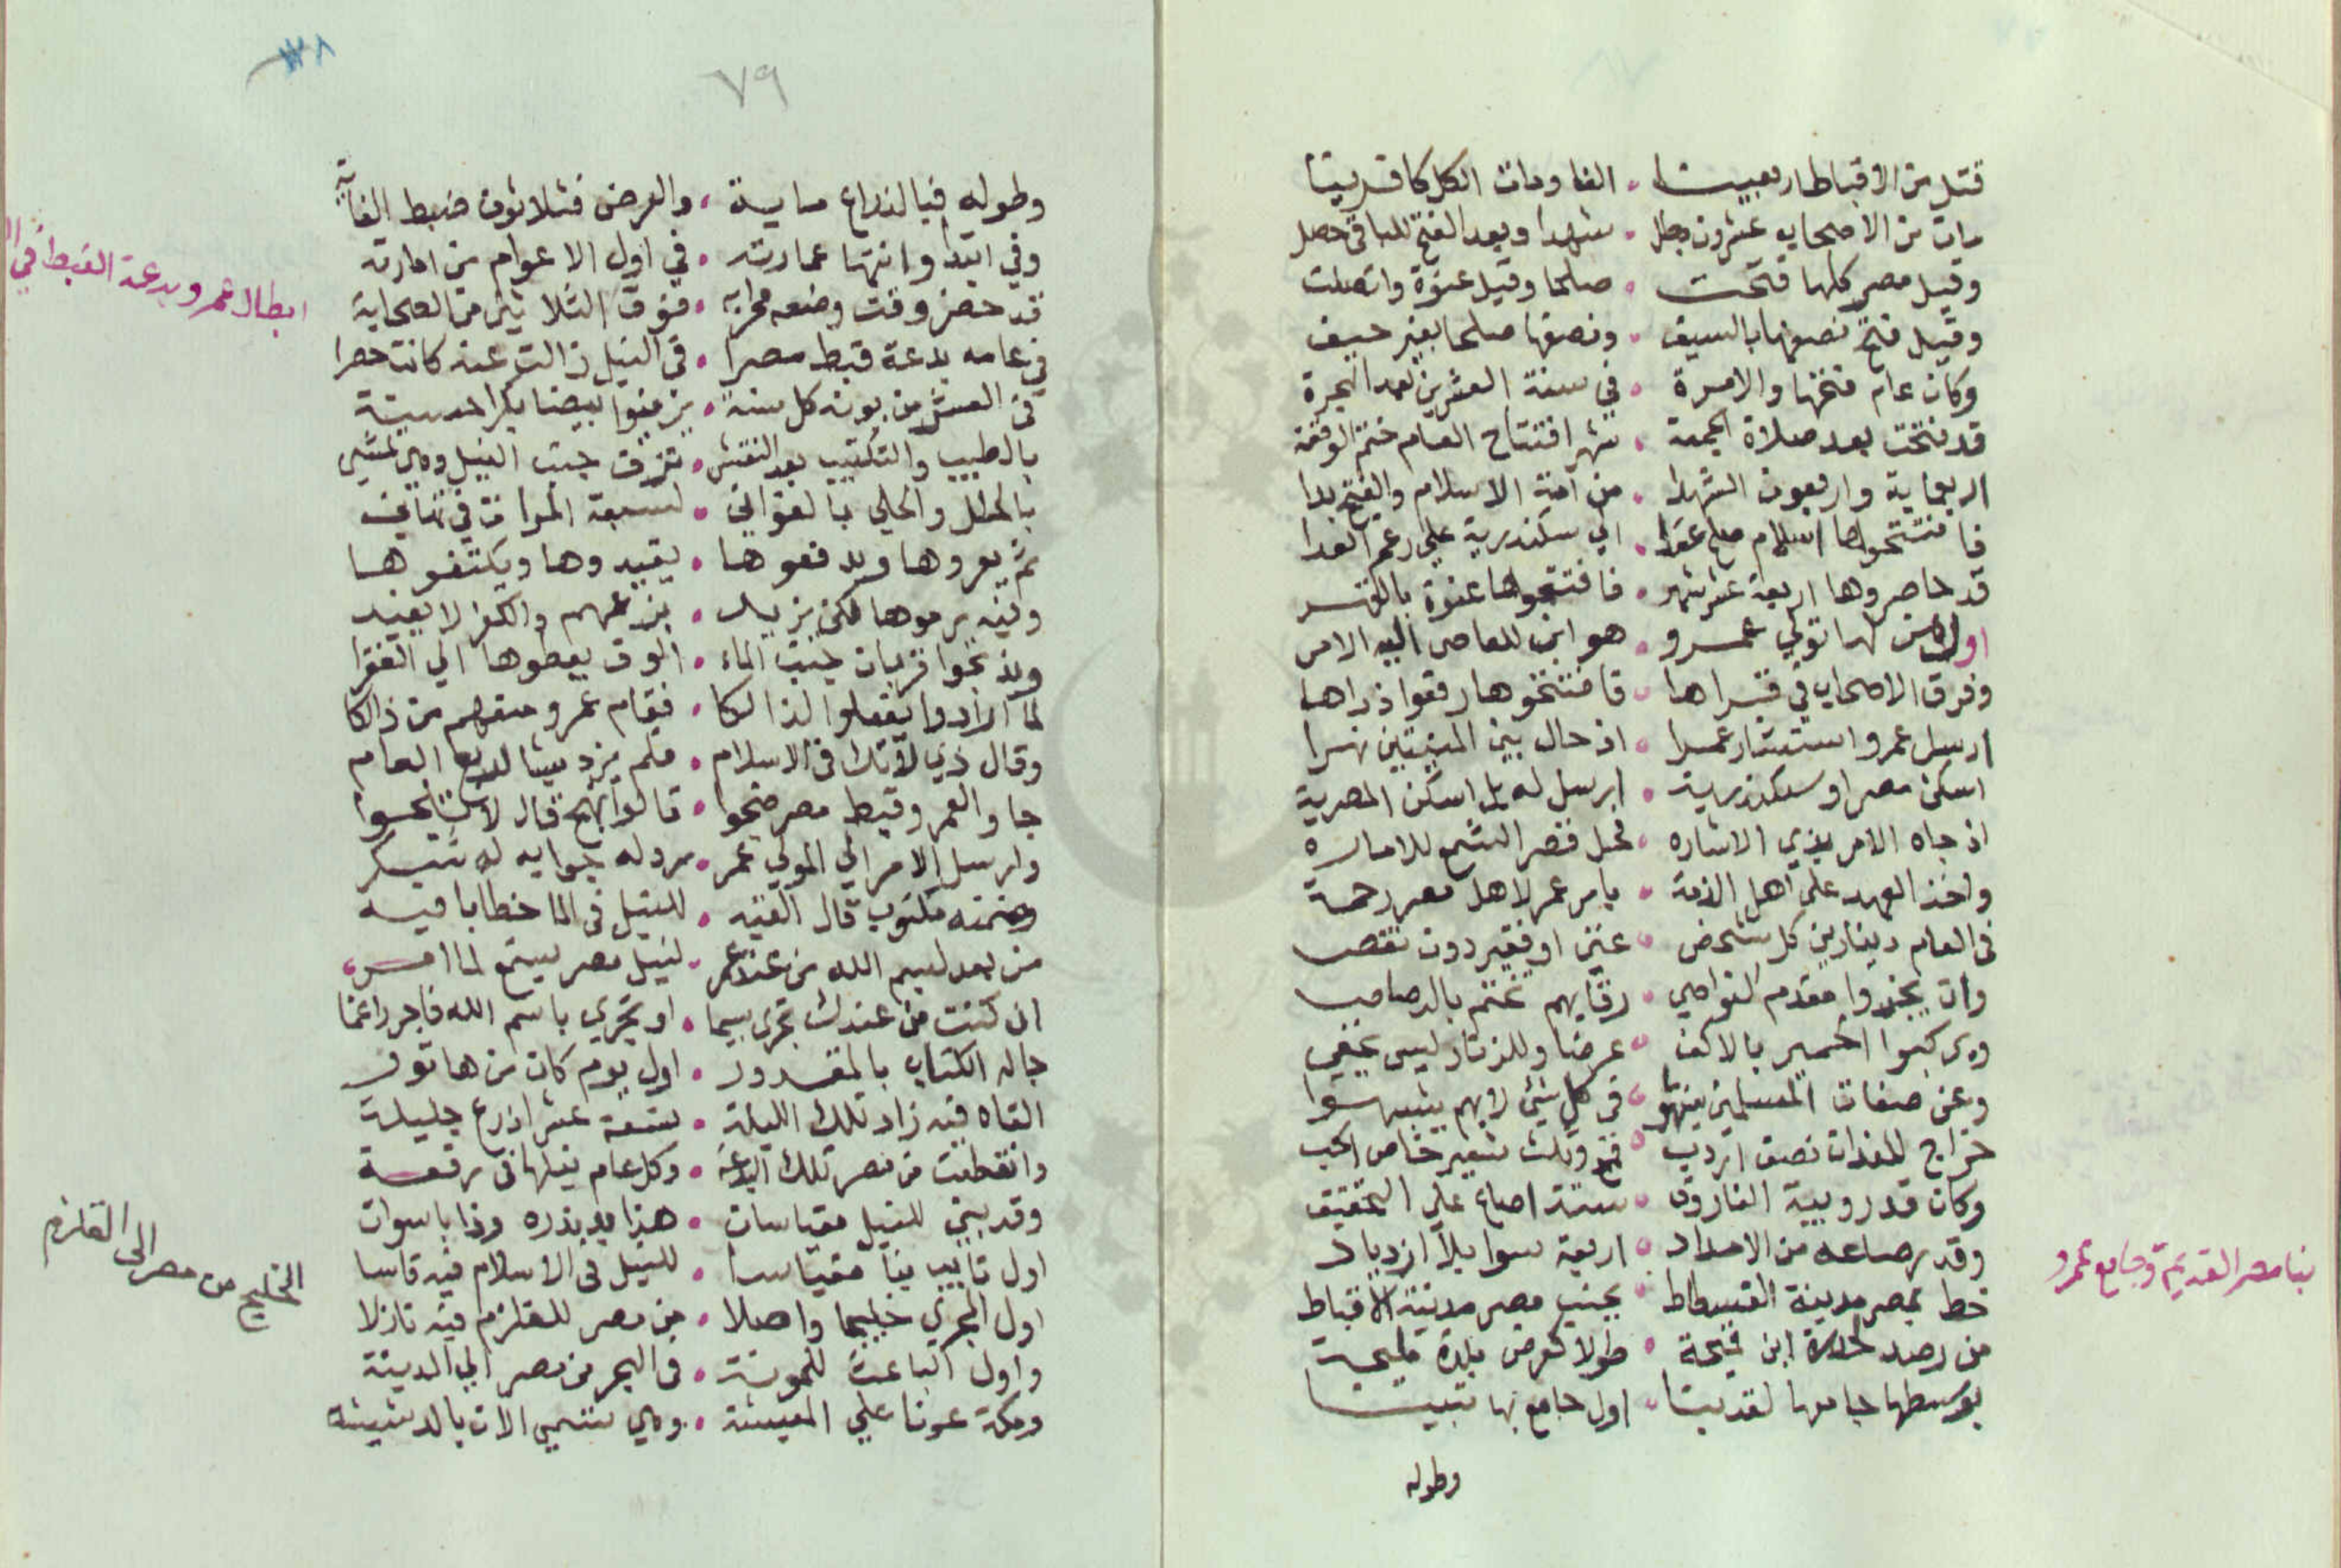 قتل من الاقباط اربعينا . الفا ومات الكل كافرينا
مات من الاصحاب عشرون رجل . شهدا وبعد الفتح للباقي حصل
وقيل مصر كلها فتحت . صلحا وقيل عنوة واتصلت
وقيل فتح نصفها بالسيف . ونصفها صلحا بغير حيف
وكان عام فتحها والامرة . في سنة العشرين بعد الهجرة
قد فتحت بعد صلاة الجمعة . شهر افتتاح العام ختم الوقعة
اربعماية واربعون الشهدا . من امة الاسلام والفتح بدا
فافتتحوها اسلام صلح عقدا . الي سكندرية علي رغم العدا
قد حاصروها اربعة عشر شهر . فافتتحوها عنوة بالقهر
اول من لها تولي عمرو . هو ابن للعاص اليه الامر
وفرق الاصحاب في قراها . فافتتحوها رفعوا ذراها
ارسل عمرو استشار عمرا . اذ حال بين المدينتين نهرا
اسكن مصر او سكندرية . ارسل له بل اسكن المصرية
اذ جاه الامر بذي الاشاره . فحل قصر الشمع للاماره
واخذ العهد علي اهل الذمة . بامر عمر لاهل مصر رحمة
في العام دينارين كل شخص . غني او فقير دون نقص
وان يجزوا مقدم النواصي . رقابهم تختم بالرصاص
ويركبوا الحمير بالاكف . عرضا وللزنار ليس يخفي
وعن صفات المسلمين ينهوا . في كل شئ لابهم يشبهوا
خراج للفدان نصف اردب . قمح وثلث شعير خاص الحب
وكان قدر ويبة الفاروق . ستة اصاع علي التحقيق
وقدر صاعه من الامداد . اربعة سوا بلا ازدياد
خط بمصر مدينة الفسطاط . بجنب مصر مدينة الاقباط
من رصد لحارة ابن قميحة . طولا كعرض بلدة مليحة
بوسطها جامعها لقد بنا . اول جامع بها تبينا
وطوله
بنا مصر القديمة وجامع عمرو
٧٩
وطوله فبالذراع ماية . والعرض فثلاثون ضبط الغاية
وفي ابتدا وانتها عمارته . في اول الاعوام من امارته
قد حضر وقت وضعه محرابه . فوق الثلاثين من الصحابة
في عامه بدعة قبط مصرا . في النيل زالت عنه كانت حصرا
في العشر من بونه كل سنة . يزفوا بيضا بكرا حسينة
بالطيب والتكتيب بعد النقش . تزف جنب النيل وهي تمشي
بالحلل والحلي بالغواني . لتسعة المرات في ثماني
ثم يعروها ويدفعوها . يقيدوها ويكتفوها
وفيه يرموها لكن يزيد . بزعمهم والكفر لا يفيد
ويذبحوا قربان جنب الماء . الوف يعطوها الي الفقرا
لما ارادوا يفعلوا لذالكا . فقام عمرو منعهم من ذالكا
وقال ذي لا تك في الاسلام . فلم يزد بيتا لربع العام
جاوا لعمرو قبط مصر ضجوا . قالوا بهج قال لا تلجوا
وارسل الامر الي المولي عمر . رد له جوابه له شكر
وضمنه مكتوب قال القيه . للنيل في الما خطابا فيه
من بعد بسم الله من عند عمر . لنيل مصر يسمع لما امر
ان كنت من عندك تجري سيما . او تجري باسم الله فاجر راغما
جا له الكتاب بالمقدور . اول يوم كان من هاتور
القاه فيه زاد تلك الليلة . ستة عشر اذرع جليلة
وانقطعت من مصر تلك البدعة . وكل عام نيلها في رفعة
وقد بني للنيل مقياسان . هذا وذا باسوان
اول نايب بنا مقياسا . للنيل في الاسلام فيه قاسا
اول المجري خليجا واصلا . من مصر للقلزم فيه نازلا
واول الباعث للمونة . في البحر من مصر الي المدينة
ومكة عونا علي المعيشة . وهي تسمي الان بالدشيشة
ابطال عمرو بدعة القبط في
الخليج من مصر الى القلزم